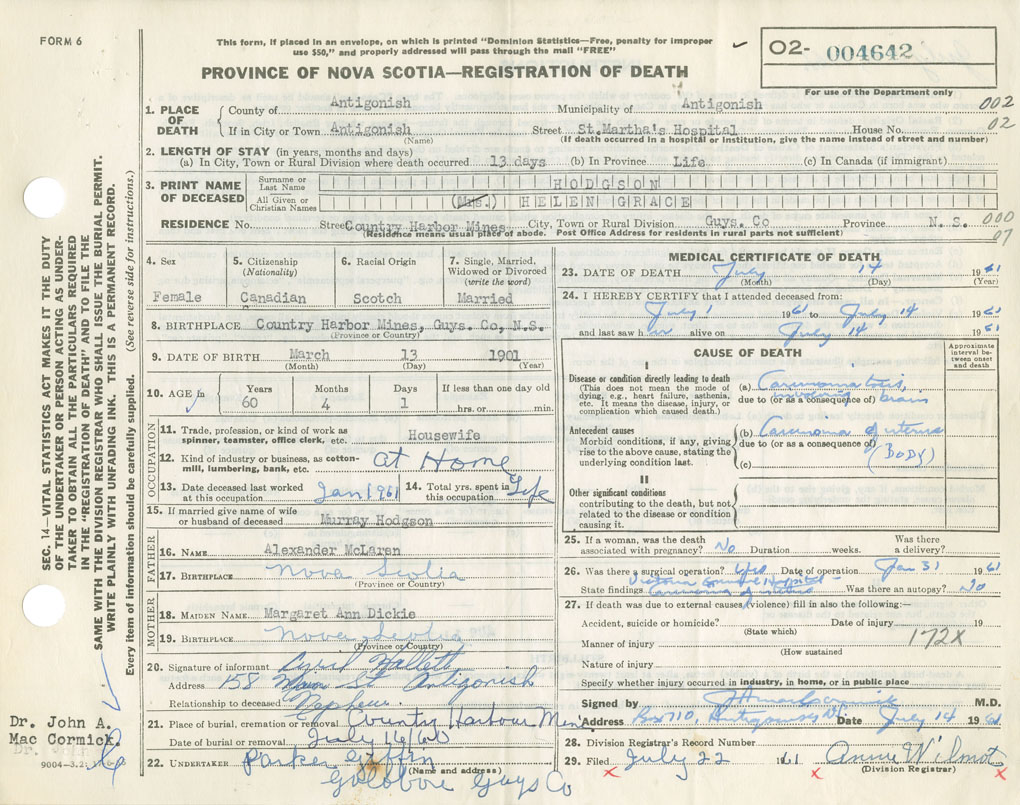 FORM 6
This form, if placed in an envelope, on which is printed "Dominion Statistics—Free, penalty for improper
use $50," and properly addressed will pass through the mail "FREE"
O2- 004642
PROVINCE OF NOVA SCOTIA—REGISTRATION OF DEATH
For use of the Department only
1. PLACE OF DEATH County of Antigonish Municipality of Antigonish 002
If in City or Town Antigonish Street St.Martha's Hospital House No. 02
(Name) (If death occurred in a hospital or institution, give the name instead of street and number)
2. LENGTH OF STAY (in years, months and days)
(a) In City, Town or Rural Division where death occurred 13 days (b) In Province Life (c) In Canada (if immigrant)
3. PRINT NAME OF DECEASED Surname or Last Name HODGSON
All Given or Christian Names (Mrs.) HELEN GRACE
RESIDENCE No. Street Country Harbor Mines City, Town or Rural Division Guys. Co Province N. S. 000
(Residence means usual place of abode. Post Office Address for residents in rural parts not sufficient) 07
4. Sex Female
5. Citizenship (Nationality) Canadian
6. Racial Origin Scotch
7. Single, Married, Widowed or Divorced (write the word) Married
8. BIRTHPLACE Country Harbor Mines, Guys. Co, N.S.
(Province or Country)
9. DATE OF BIRTH March 13 1901
(Month) (Day) (Year)
10. AGE in Years 60 Months 4 Days 1 If less than one day old hrs. or min.
OCCUPATION
11. Trade, profession, or kind of work as spinner, teamster, office clerk, etc. Housewife
12. Kind of industry or business, as cotton-mill, lumbering, bank, etc. at Home
13. Date deceased last worked at this occupation Jan 1961
14. Total yrs. spent in this occupation Life
15. If married give name of wife or husband of deceased Murray Hodgson
FATHER
16. NAME Alexander McLaren
17. BIRTHPLACE Nova Scotia
(Province or Country)
MOTHER
18. MAIDEN NAME Margaret Ann Dickie
19. BIRTHPLACE Nova Scotia
(Province or Country)
20. Signature of informant Hallett
Address 158 Main St Antigonish
Relationship to deceased Nephew
21. Place of burial, cremation or removal Country Harbour Mines
Date of burial or removal July 16/61
22. UNDERTAKER Parker Giffin
(Name and address)
Goldboro Guys Co
MEDICAL CERTIFICATE OF DEATH
23. DATE OF DEATH July 14 1961
(Month) (Day) (Year)
24. I HEREBY CERTIFY that I attended deceased from:
July 1 1961 to July 14 1961
and last saw her alive on July 14 1961
CAUSE OF DEATH
Approximate interval between onset and death
I
Disease or condition directly leading to death
(This does not mean the mode of dying, e.g., heart failure, asthenia, etc. It means the disease, injury, or complication which caused death.)
(a) Carcinomatosis
involving brain
due to (or as a consequence of)
Antecedent causes
Morbid conditions, if any, giving rise to the above cause, stating the underlying condition last.
(b) Carcinoma of uterus
due to (or as a consequence of) (BODY)
(c)
II
Other significant conditions
contributing to the death, but not related to the disease or condition causing it.
25. If a woman, was the death associated with pregnancy? No Duration weeks. Was there a delivery?
26. Was there a surgical operation? Yes Date of operation Jan 31 1961
Victoria General Hospital
State findings Carcinoma of uterus Was there an autopsy? No
27. If death was due to external causes (violence) fill in also the following:—
Accident, suicide or homicide? Date of injury 19
(State which)
Manner of injury 172X
(How sustained
Nature of injury
Specify whether injury occurred in industry, in home, or in public place
Signed by J A MacCormick M.D.
Address Box 710, Antigonish NS Date July 14 1961
28. Division Registrar's Record Number
29. Filed July 22 1961 Annie Wilmot
(Division Registrar)
SEC. 14—VITAL STATISTICS ACT MAKES IT THE DUTY
OF THE UNDERTAKER OR PERSON ACTING AS UNDER-
TAKER TO OBTAIN ALL THE PARTICULARS REQUIRED
IN THE "REGISTRATION OF DEATH" AND TO FILE THE
SAME WITH THE DIVISION REGISTRAR WHO SHALL ISSUE THE BURIAL PERMIT.
WRITE PLAINLY WITH UNFADING INK. THIS IS A PERMANENT RECORD.
Every item of information should be carefully supplied. (See reverse side for instructions.)
Dr. John A.
Mac Cormick.